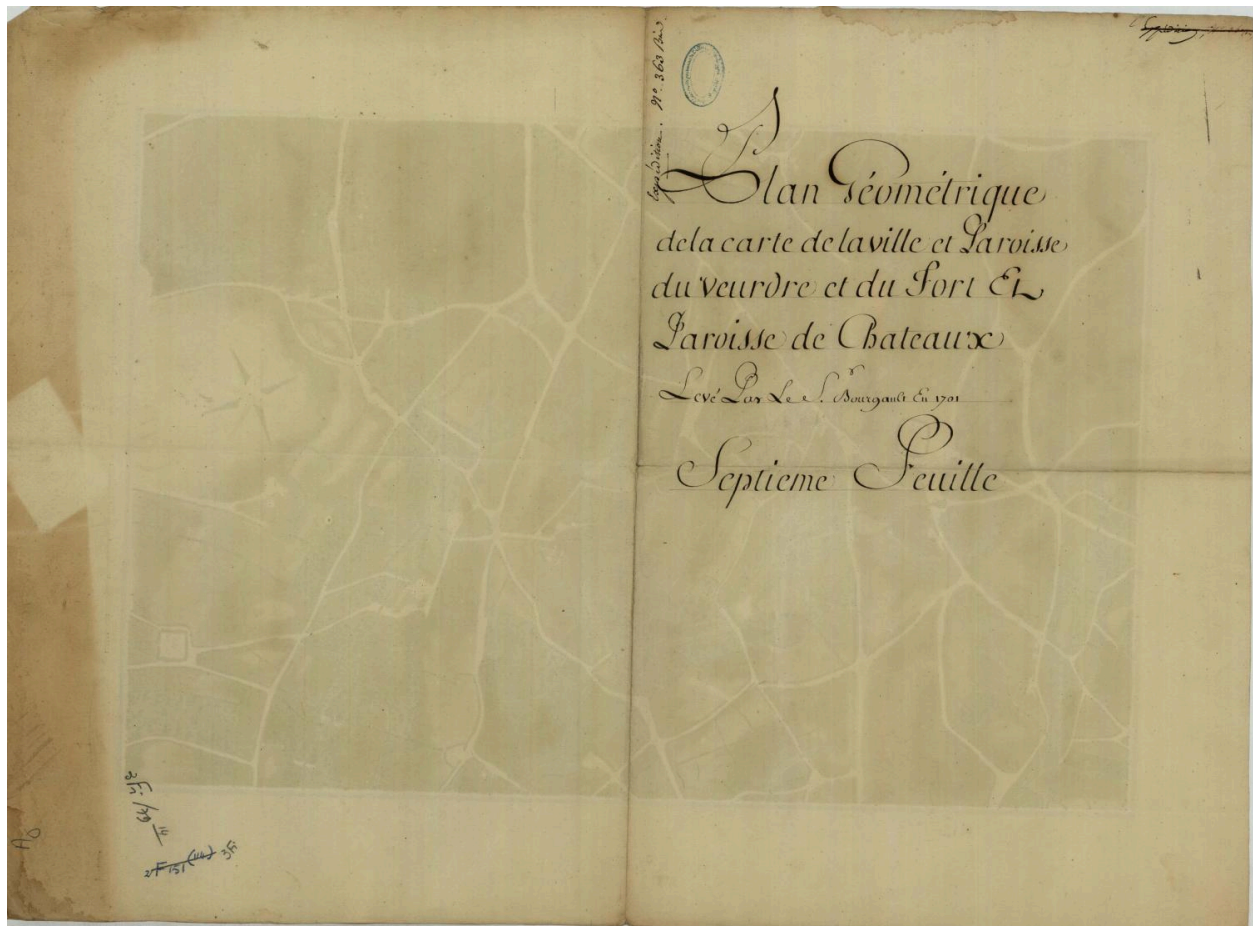 Expédition. N.º 363 Bis.
Plan Géométrique
de la carte de la ville et Paroisse
du Veurdre et du Port Et
Paroisse de Chateaux
Levé Par Le S.r Bourgault En 1701
Septieme Feuille
3Fi /79 14
2F 151 (14) 3Fi